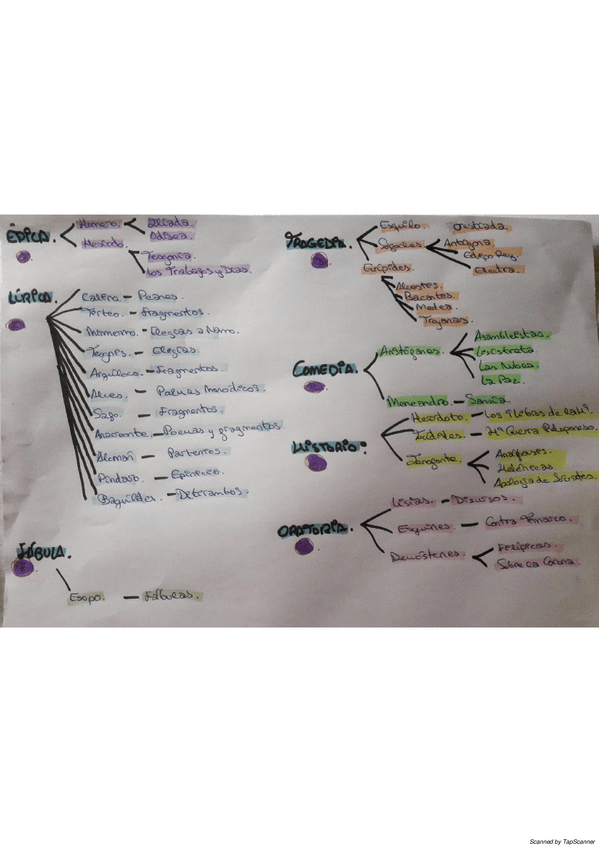 ÉPICA.
Homero
Ilíada.
Odisea.
Hesíodo.
Teogonía.
Los Trabajos y Días.
LÍRICA.
Calino. - Peanes.
Tirteo. - Fragmentos.
Mimnermo. - Elegías a Nanno.
Teognis. - Elegías.
Arquíloco. - Fragmentos.
Alceo. - Poemas Monódicos.
Safo. - Fragmentos.
Anacreonte. - Poemas y fragmentos.
Alcmán - Partenios.
Píndaro. - Epinicio.
Baquílides. - Ditirambos.
FÁBULA.
Esopo. - Fábulas.
TRAGEDIA.
Esquilo. Orestiada.
Sófocles
Antígona
Edipo Rey.
Electra.
Eurípides.
Alcestes.
Bacantes.
Medea.
Troyanas.
COMEDIA.
Aristófanes.
Asambleístas.
Lisístrata.
Las Nubes.
La Paz.
Menandro. - Samia.
HISTORIO:
Heródoto. - Los 9 Libros de la Hª.
Tucídides. - Hª Guerra Peloponeso.
Jenofonte.
Anábasis.
Helénicas.
Apología de Sócrates.
ORATORIA.
Lisias. - Discursos.
Esquines - Contra Timarco.
Demóstenes.
Filípicas.
Sobre la Corona.
Scanned by TapScanner